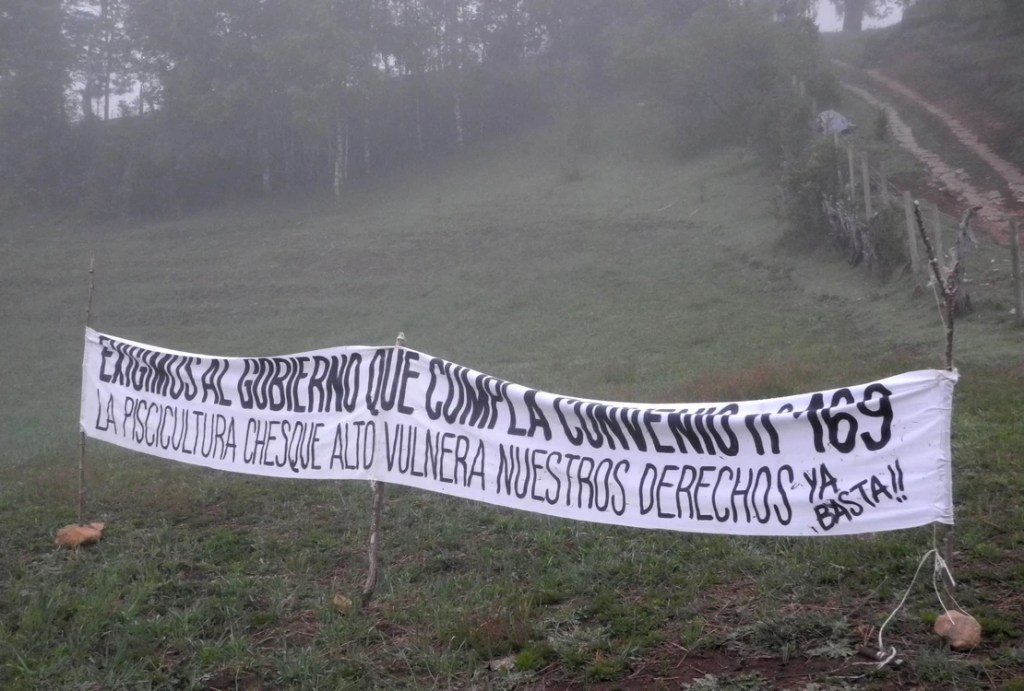 EXIGIMOS AL GOBIERNO QUE CUMPLA CONVENIO nº 169
LA PISCICULTURA CHESQUE ALTO VULNERA NUESTROS DERECHOS YA
BASTA!!